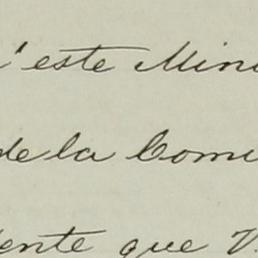 'este Mini
de la Comi
ente que V